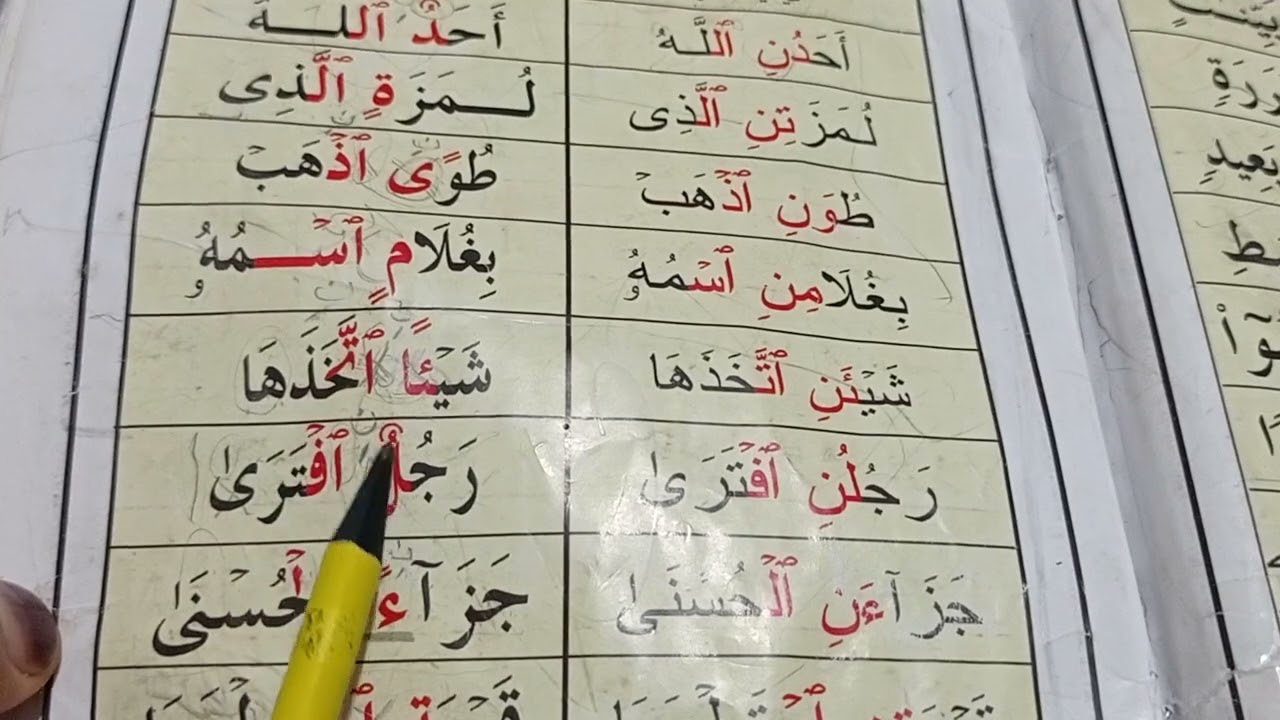 أَحَدُنِ ٱللَّـهُ أَحَدٌ ٱللـــهُ
لُمَزَتِنِ ٱلَّذِى لُـــمَزَةٍ ٱلَّذِى
طُوَنِ ٱذْهَبْ طُوًى ٱذْهَبْ
بِغُلَامِنِ ٱسْمُهُۥ بِغُلَامٍ ٱسْـــمُهُۥ
شَيْئَنِ ٱتَّخَذَهَا شَيْـًٔا ٱتَّخَذَهَا
رَجُلُنِ ٱفْتَرَىٰ رَجُلٌ ٱفْتَرَىٰ
جَزَآءَنِ ٱلْحُسْنَىٰ جَزَآءً